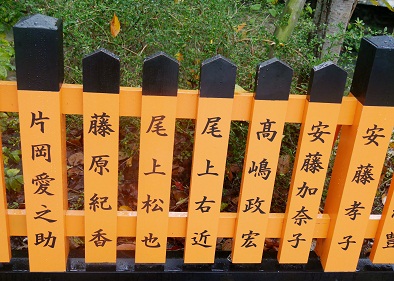 片岡愛之助
藤原紀香
尾上松也
尾上右近
髙嶋政宏
安藤加奈子
安藤孝子
豊